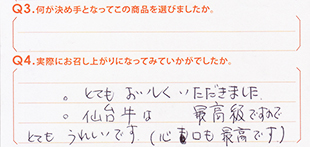 Q3.何が決め手となってこの商品を選びましたか。
Q4.実際にお召し上がりになってみていかがでしたか。
。とても おいしく いただきました
。仙台牛は 最高級ですので
とても うれしいです (心 口も最高です)